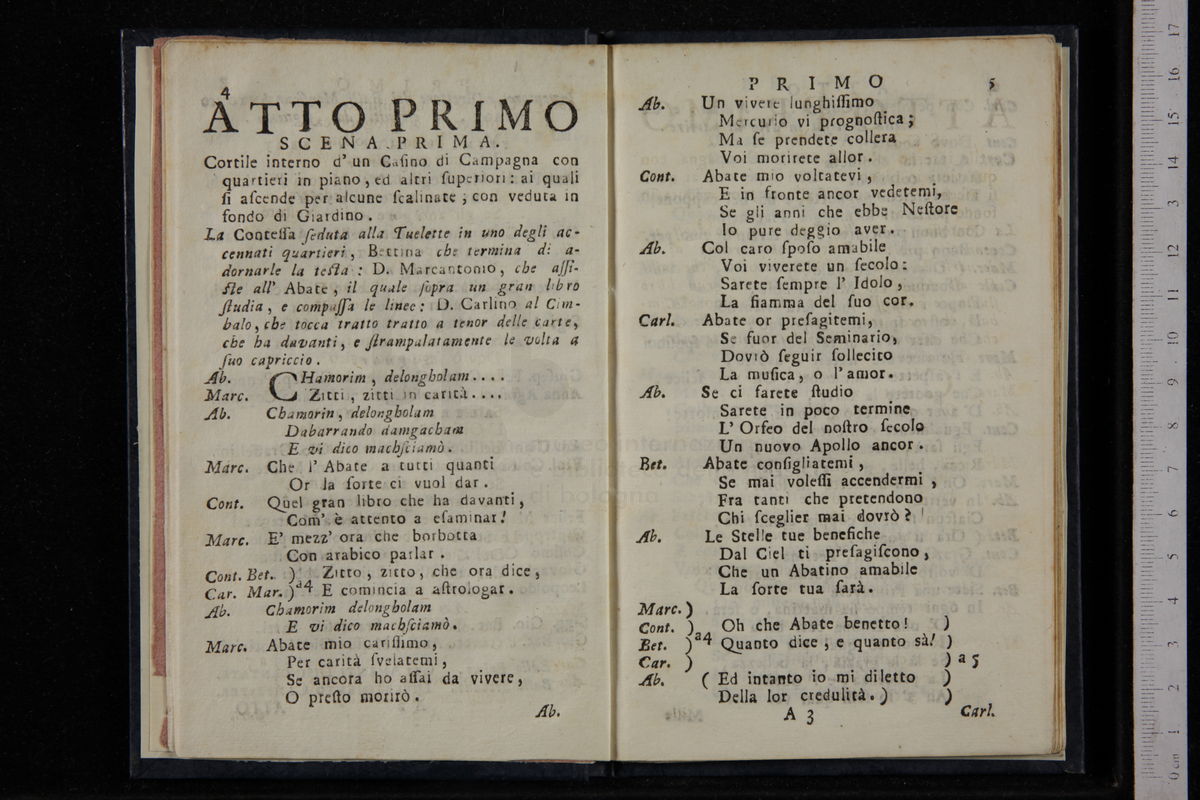 4
ATTO PRIMO
SCENA PRIMA.
Cortile interno d' un Caſino di Campagna con
quartieri in piano, ed altri ſuperiori: ai quali
ſi aſcende per alcune ſcalinate; con veduta in
fondo di Giardino.
La Conteſſa ſeduta alla Tuelette in uno degli ac-
cennati quartieri, Bettina che termina di a-
dornarle la teſta: D. Marcantonio, che aſſi-
ſte all' Abate, il quale ſopra un gran libro
ſtudia, e compaſſa le linee: D. Carlino al Cim-
balo, che tocca tratto tratto a tenor delle carte,
che ha davanti, e ſtrampalatamente le volta a
ſuo capriccio.
Ab. CHamorim, delongholam....
Marc. Zitti, zitti in carità....
Ab. Chamorin, delongholam
Dabarrando damgacham
E vi dico machſciamò.
Marc. Che l' Abate a tutti quanti
Or la ſorte ci vuol dar.
Cont. Quel gran libro che ha davanti,
Com' è attento a eſaminar!
Marc. E' mezz' ora che borbotta
Con arabico parlar.
Cont. Bet. ) Zitto, zitto, che ora dice,
Car. Mar. )a4 E comincia a aſtrologar.
Ab. Chamorim delongholam
E vi dico machſciamò.
Marc. Abate mio cariſſimo,
Per carità ſvelatemi,
Se ancora ho aſſai da vivere,
O preſto morirò.
Ab.
PRIMO 5
Ab. Un vivere lunghiſſimo
Mercurio vi prognoſtica;
Ma ſe prendete collera
Voi morirete allor.
Cont. Abate mio voltatevi,
E in fronte ancor vedetemi,
Se gli anni che ebbe Neſtore
Io pure deggio aver.
Ab. Col caro ſpoſo amabile
Voi viverete un ſecolo:
Sarete ſempre l' Idolo,
La fiamma del ſuo cor.
Carl. Abate or preſagitemi,
Se fuor del Seminario,
Dovrò ſeguir ſollecito
La muſica, o l' amor.
Ab. Se ci farete ſtudio
Sarete in poco termine
L' Orfeo del noſtro ſecolo
Un nuovo Apollo ancor.
Bet. Abate conſigliatemi,
Se mai voleſſi accendermi,
Fra tanti che pretendono
Chi ſceglier mai dovrò?
Ab. Le Stelle tue benefiche
Dal Ciel ti preſagiſcono,
Che un Abatino amabile
La ſorte tua ſarà.
Marc. )
Cont. ) Oh che Abate benetto! )
Bet. )a4 Quanto dice, e quanto sà! )
Car. ) ) a 5
Ab. ( Ed intanto io mi diletto )
Della lor credulità. ) )
A 3 Carl.